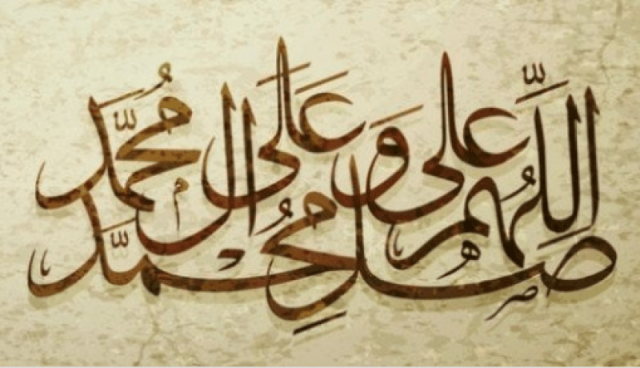 اللّهُم صل على مُحِمّد وَ عَلَى ال مُحمَّد